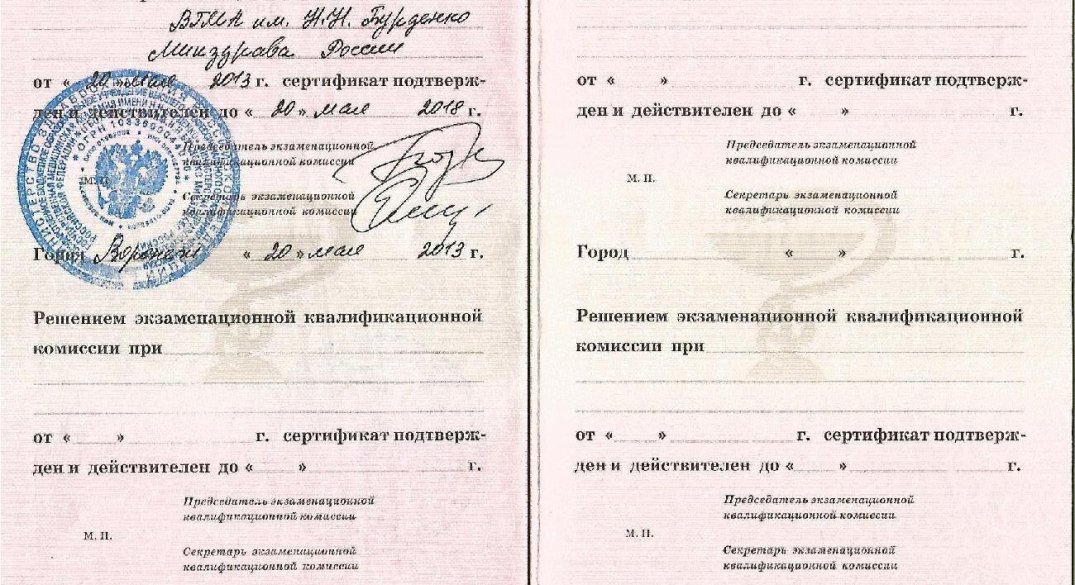 ВГМА им. Н.Н. Бурденко
Минздрава России
от « 20 » мая 2013 г. сертификат подтверж-
ден и действителен до « 20 » мая 2018 г.
Председатель экзаменационной
квалификационной комиссии
М. П.
Секретарь экзаменационной
квалификационной комиссии
Город Воронеж « 20 » мая 2013 г.
Решением экзаменационной квалификационной
комиссии при
от « » г. сертификат подтверж-
ден и действителен до « » г.
Председатель экзаменационной
квалификационной комиссии
М. П.
Секретарь экзаменационной
квалификационной комиссии
от « » г. сертификат подтверж-
ден и действителен до « » г.
Председатель экзаменационной
квалификационной комиссии
М. П.
Секретарь экзаменационной
квалификационной комиссии
Город « » г.
Решением экзаменационной квалификационной
комиссии при
от « » г. сертификат подтверж-
ден и действителен до « » г.
Председатель экзаменационной
квалификационной комиссии
М. П.
Секретарь экзаменационной
квалификационной комиссии